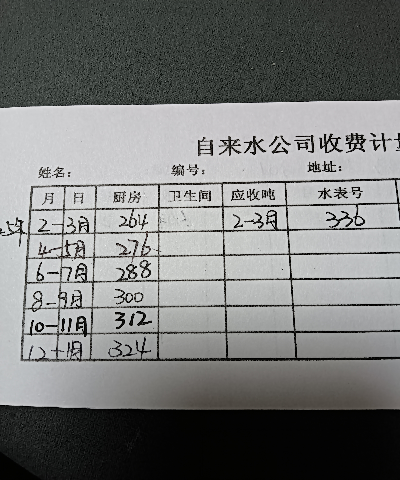 自来水公司收费计
姓名： 编号： 地址：
月 日 厨房 卫生间 应收吨 水表号
5年 2-3月 264 2-3月 336
4-5月 276
6-7月 288
8-9月 300
10-11月 312
12-1月 324